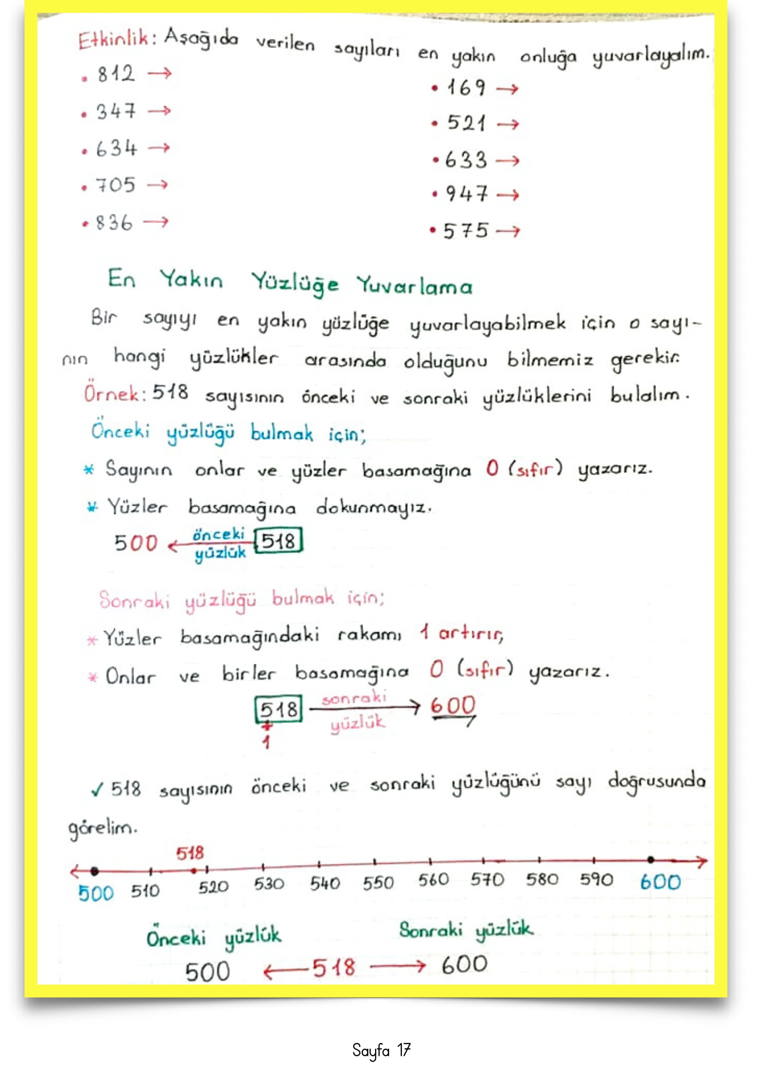 Etkinlik: Aşağıda verilen sayıları en yakın onluğa yuvarlayalım.
• 812 →
• 347 →
• 634 →
• 705 →
• 836 →
• 169 →
• 521 →
• 633 →
• 947 →
• 575 →
En Yakın Yüzlüğe Yuvarlama
Bir sayıyı en yakın yüzlüğe yuvarlayabilmek için o sayı-
nın hangi yüzlükler arasında olduğunu bilmemiz gerekir.
Örnek: 518 sayısının önceki ve sonraki yüzlüklerini bulalım.
Önceki yüzlüğü bulmak için;
* Sayının onlar ve yüzler basamağına 0 (sıfır) yazarız.
* Yüzler basamağına dokunmayız.
500 ← önceki yüzlük 518
Sonraki yüzlüğü bulmak için;
* Yüzler basamağındaki rakamı 1 artırır,
* Onlar ve birler basamağına 0 (sıfır) yazarız.
518 sonraki yüzlük → 600
+
1
✓ 518 sayısının önceki ve sonraki yüzlüğünü sayı doğrusunda
görelim.
518
500 510 520 530 540 550 560 570 580 590 600
Önceki yüzlük Sonraki yüzlük
500 ← 518 → 600
Sayfa 17